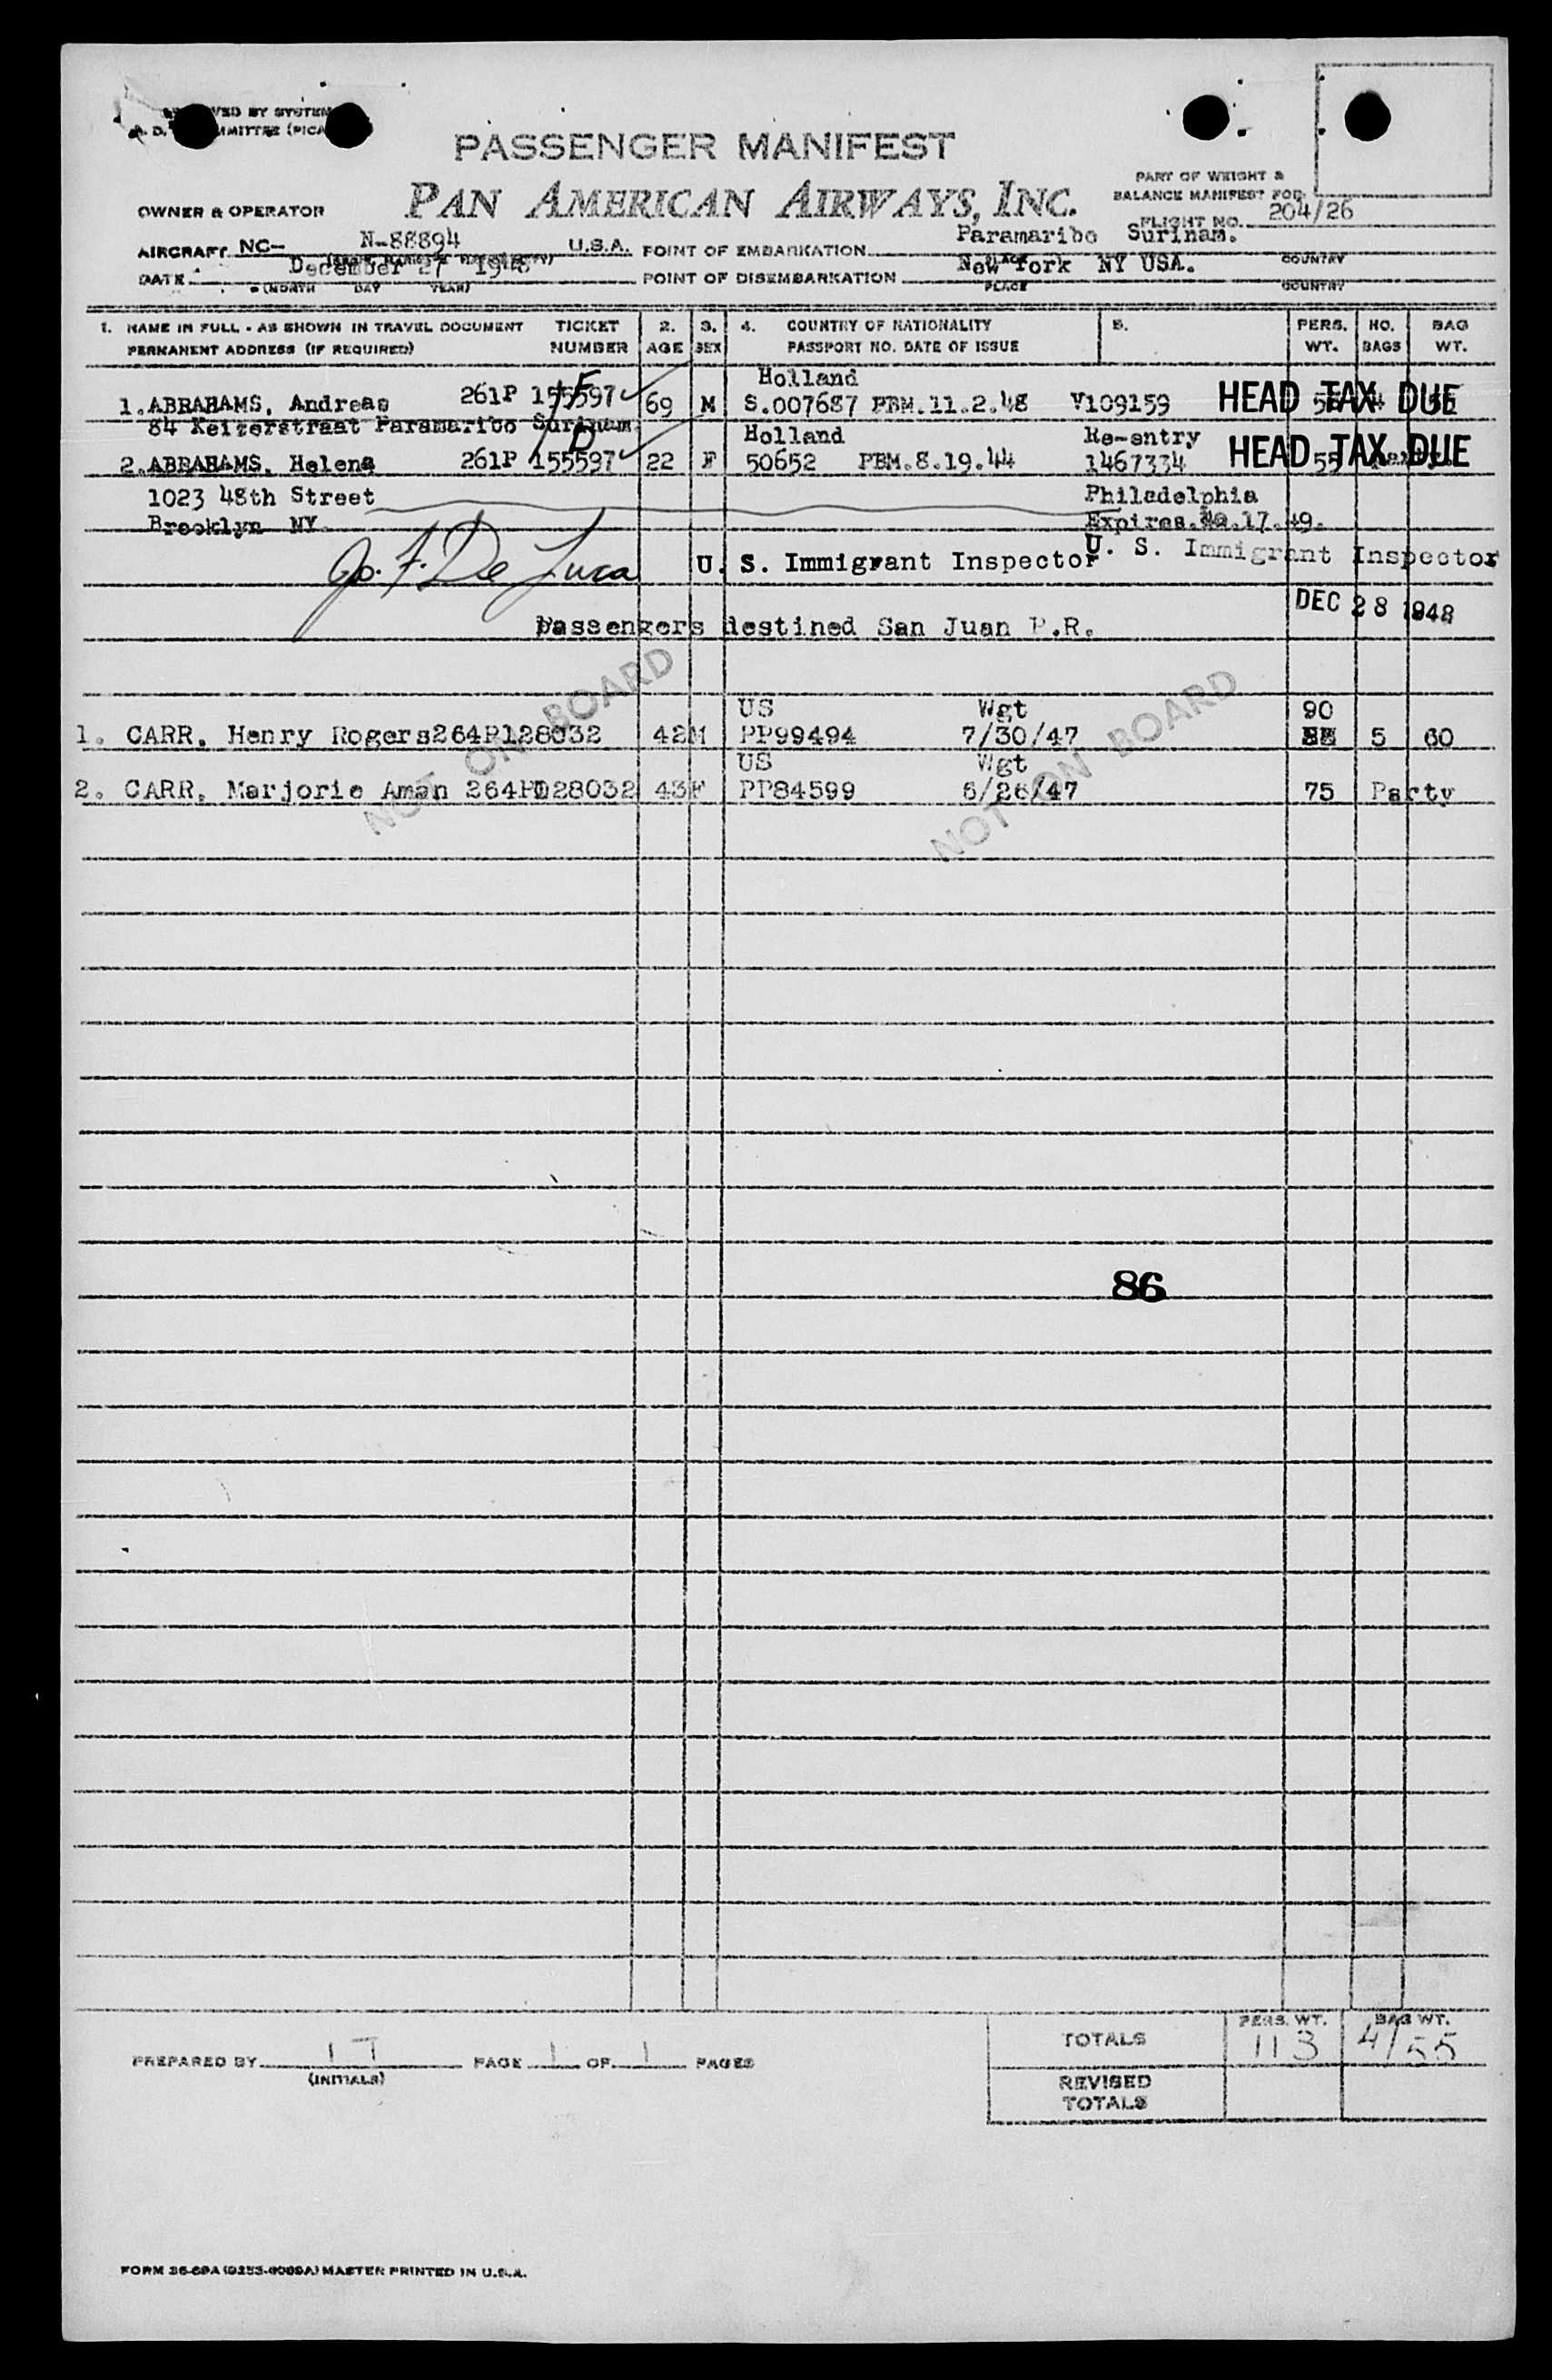 PASSENGER MANIFEST
PAN AMERICAN AIRWAYS, INC.
OWNER & OPERATOR
PART OF WEIGHT &
BALANCE MANIFEST FOR
FLIGHT NO. 204/26
AIRCRAFT NC- N-88894 U.S.A. POINT OF EMBARKATION Paramaribo Surinam.
DATE December 27 1948 POINT OF DISEMBARKATION New York NY USA.
(MONTH DAY YEAR) PLACE COUNTRY
1. NAME IN FULL - AS SHOWN IN TRAVEL DOCUMENT TICKET 2. 3. 4. COUNTRY OF NATIONALITY 5. PERS. NO. BAG
PERMANENT ADDRESS (IF REQUIRED) NUMBER AGE SEX PASSPORT NO. DATE OF ISSUE WT. BAGS WT.
Holland
1. ABRAHAMS, Andreas 261P 155597 69 M S.007687 PBM.11.2.48 V109159 HEAD TAX DUE
84 Keizerstraat Paramaribo Surinam
Holland Re-entry
2. ABRAHAMS, Helena 261P 155597 22 F 50652 PBM.8.19.44 1467334 HEAD TAX DUE
1023 48th Street Philadelphia
Brooklyn NY Expires. 17.49.
Jo. F. De Luca U. S. Immigrant Inspector U. S. Immigrant Inspector
DEC 28 1948
Passengers destined San Juan P.R.
NOT ON BOARD NOT ON BOARD
US Wgt 90
1. CARR, Henry Rogers 264P128032 42 M PP99494 7/30/47 5 60
US Wgt
2. CARR, Marjorie Aman 264P 128032 43 F PP84599 6/26/47 75 Party
86
PERS. WT. BAG WT.
TOTALS 113 4/55
PREPARED BY PAGE 1 OF 1 PAGES
(INITIALS)
REVISED
TOTALS
MASTER PRINTED IN U.S.A.